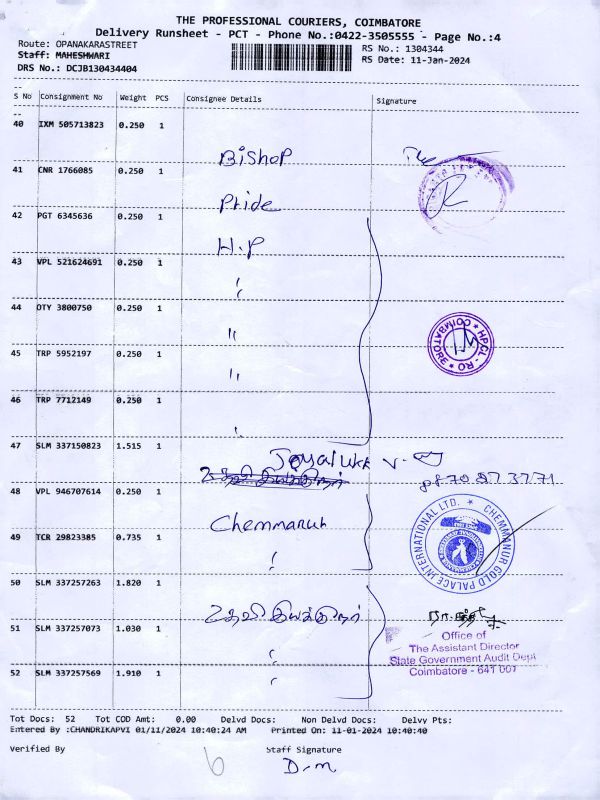 THE PROFESSIONAL COURIERS, COIMBATORE
Delivery Runsheet - PCT - Phone No.:0422-3505555 - Page No.:4
Route: OPANAKARASTREET RS No.: 1304344
Staff: MAHESHWARI RS Date: 11-Jan-2024
DRS No.: DCJB130434404
S No Consignment No Weight PCS Consignee Details Signature
40 IXM 505713823 0.250 1 Bishop
41 CNR 1766085 0.250 1 Pride
42 PGT 6345636 0.250 1 H.P
43 VPL 521624691 0.250 1 "
44 OTY 3800750 0.250 1 "
COIMBATORE * HPCL - RO *
45 TRP 5952197 0.250 1 "
46 TRP 7712149 0.250 1 "
47 SLM 337150823 1.515 1 Joyalukk
48 VPL 946707614 0.250 1 Chemmanur
CHEMMANUR GOLD PALACE INTERNATIONAL LTD. *
49 TCR 29823385 0.735 1 "
50 SLM 337257263 1.820 1 உதவி இயக்குநர்
51 SLM 337257073 1.030 1 "
Office of
The Assistant Director
State Government Audit Dept
Coimbatore - 641 001
52 SLM 337257569 1.910 1 "
Tot Docs: 52 Tot COD Amt: 0.00 Delvd Docs: Non Delvd Docs: Delvy Pts:
Entered By :CHANDRIKAPVI 01/11/2024 10:40:24 AM Printed On: 11-01-2024 10:40:40
Verified By Staff Signature
D.m